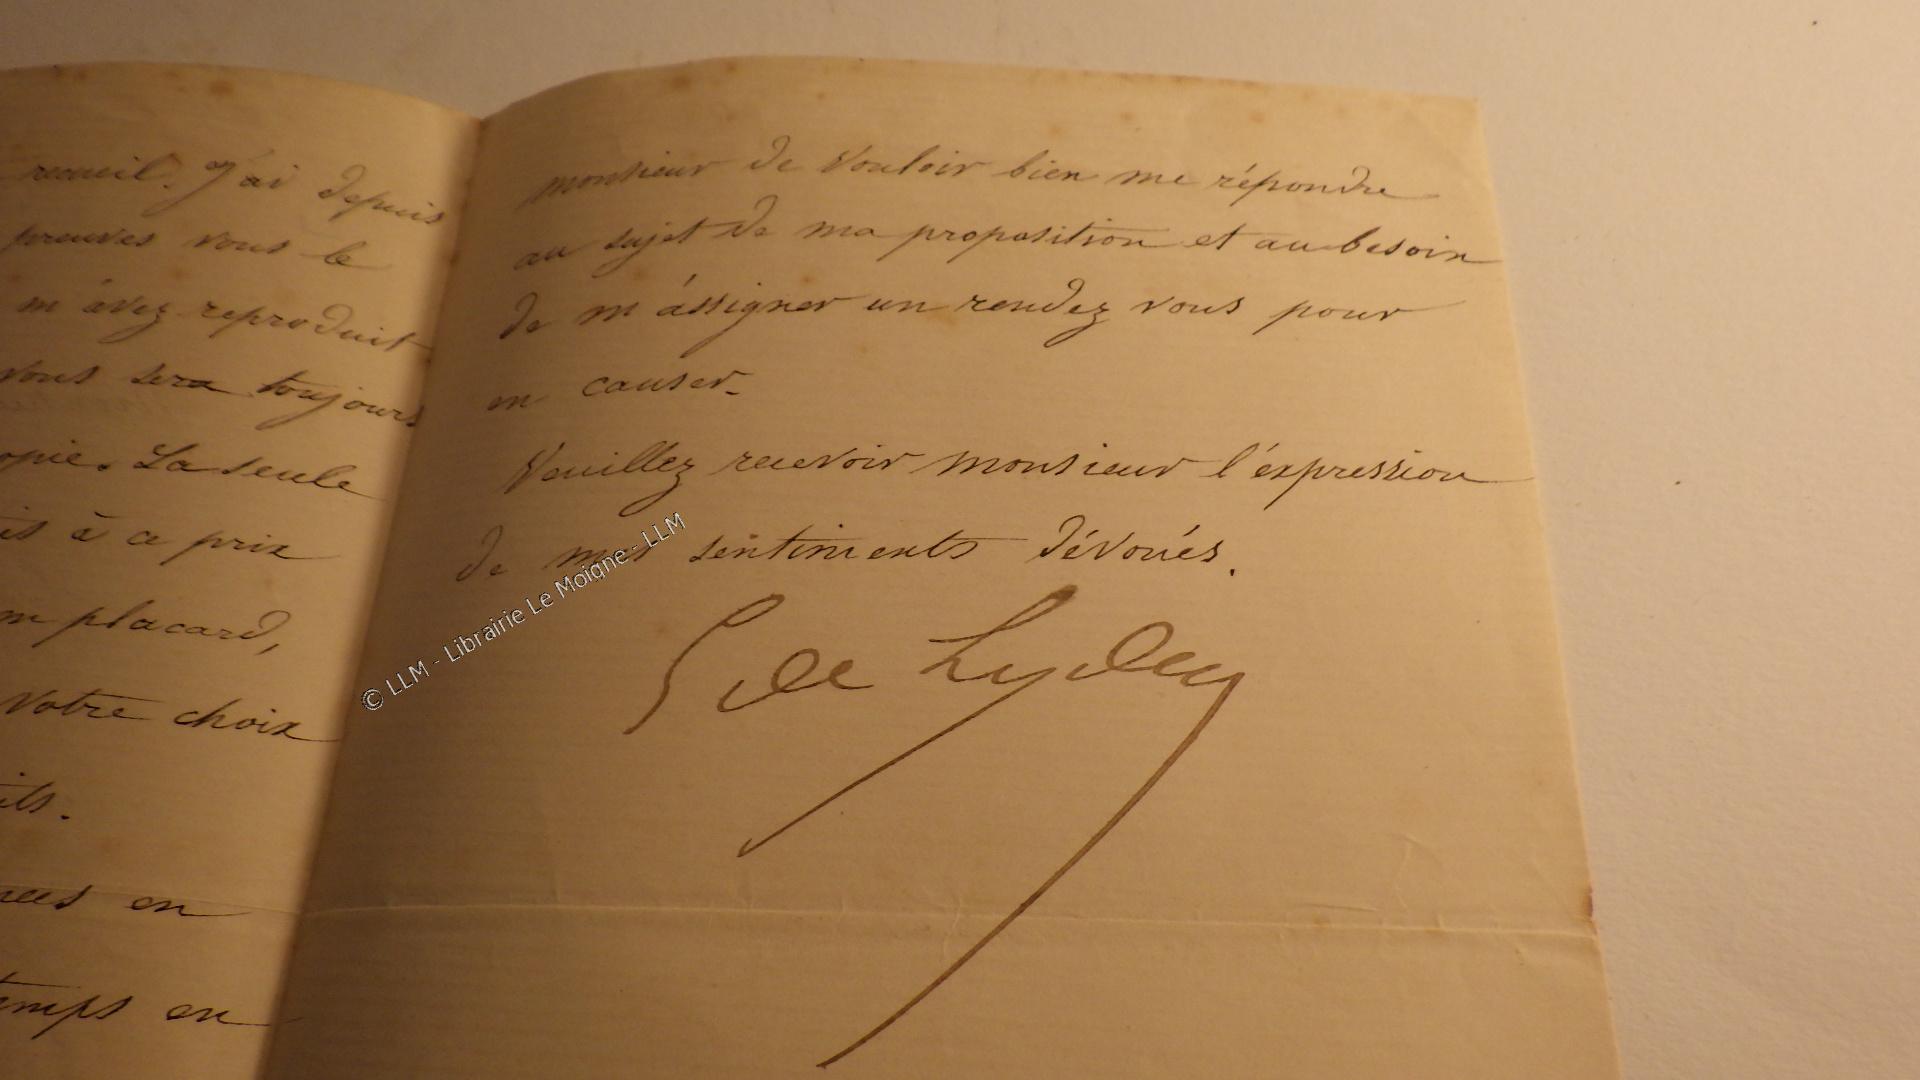 recueil. J'ai depuis
preuves vous le
m'avez reproduit
vous sera toujours
opie. La seule
is à ce prix
placard,
votre choix
its.
en
temps en
monsieur de vouloir bien me répondre
au sujet de ma proposition et au besoin
de m'assigner un rendez vous pour
en causer.
Veuillez recevoir monsieur l'expression
de mes sentiments dévoués.
de Lyden
© LLM - Librairie Le Moigne - LLM